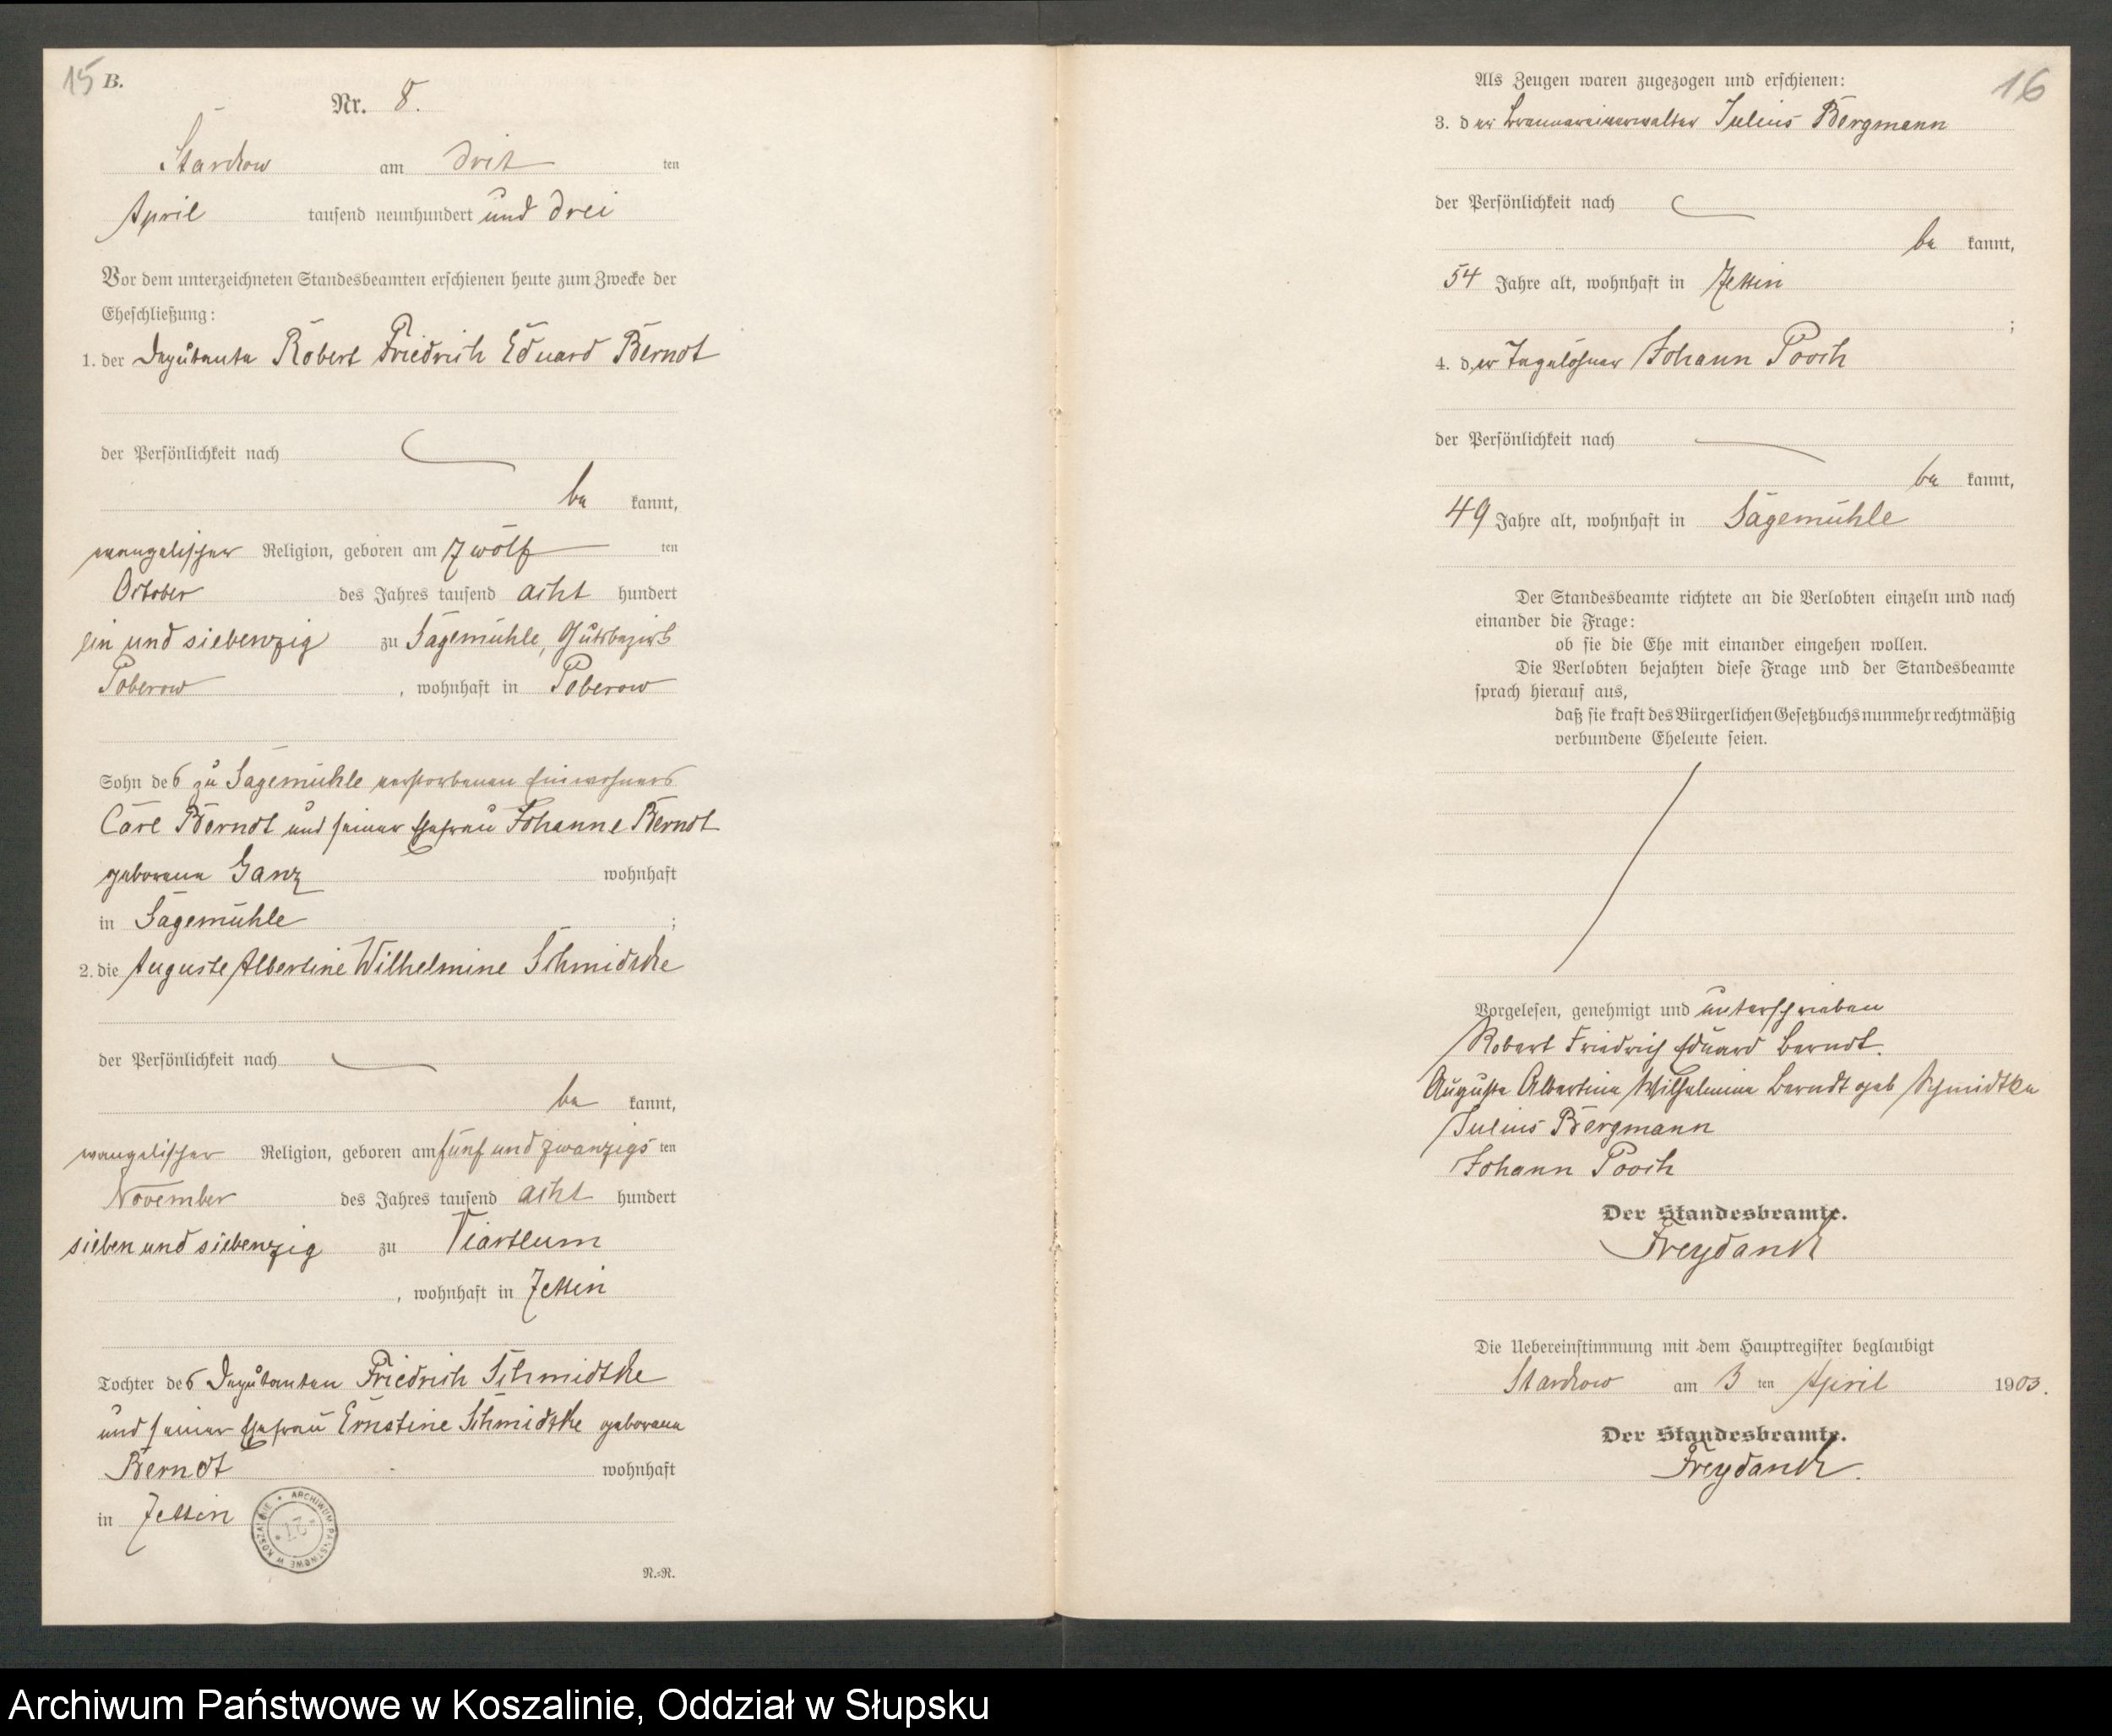 15 B.
Nr. 8.
Starckow am dritten
April tausend neunhundert und drei
Vor dem unterzeichneten Standesbeamten erschienen heute zum Zwecke der
Eheschließung:
1. der Deputante Robert Friedrich Eduard Berndt
der Persönlichkeit nach
bekannt,
evangelischer Religion, geboren am zwölften
October des Jahres tausend acht hundert
ein und siebenzig zu Sägemühle, Gutsbezirk
Poberow, wohnhaft in Poberow
Sohn des zu Sägemühle verstorbenen Einwohners
Carl Berndt und seiner Ehefrau Johanne Berndt
geborene Ganz wohnhaft
in Sägemühle;
2. die Auguste Albertine Wilhelmine Schmidtke
der Persönlichkeit nach
bekannt,
evangelischer Religion, geboren am fünf und zwanzigsten
November des Jahres tausend acht hundert
sieben und siebenzig zu Viartlum
, wohnhaft in Zettin
Tochter des Deputanten Friedrich Schmidtke
und seiner Ehefrau Ernstine Schmidtke geborene
Berndt wohnhaft
in Zettin
ARCHIWUM PAŃSTWOWE W KOSZALINIE
N.=N.
16
Als Zeugen waren zugezogen und erschienen:
3. der Brennereiverwalter Julius Bergmann
der Persönlichkeit nach
bekannt,
54 Jahre alt, wohnhaft in Zettin
;
4. der Tagelöhner Johann Pooch
der Persönlichkeit nach
bekannt,
49 Jahre alt, wohnhaft in Sägemühle
Der Standesbeamte richtete an die Verlobten einzeln und nach
einander die Frage:
ob sie die Ehe mit einander eingehen wollen.
Die Verlobten bejahten diese Frage und der Standesbeamte
sprach hierauf aus,
daß sie kraft des Bürgerlichen Gesetzbuchs nunmehr rechtmäßig
verbundene Eheleute seien.
Vorgelesen, genehmigt und unterschrieben
Robert Friedrich Eduard Berndt.
Auguste Albertine Wilhelmine Berndt geb Schmidtke
Julius Bergmann
Johann Pooch
Der Standesbeamte.
Freydanck
Die Uebereinstimmung mit dem Hauptregister beglaubigt
Starckow am 3 ten April 1903.
Der Standesbeamte.
Freydanck.
Archiwum Państwowe w Koszalinie, Oddział w Słupsku